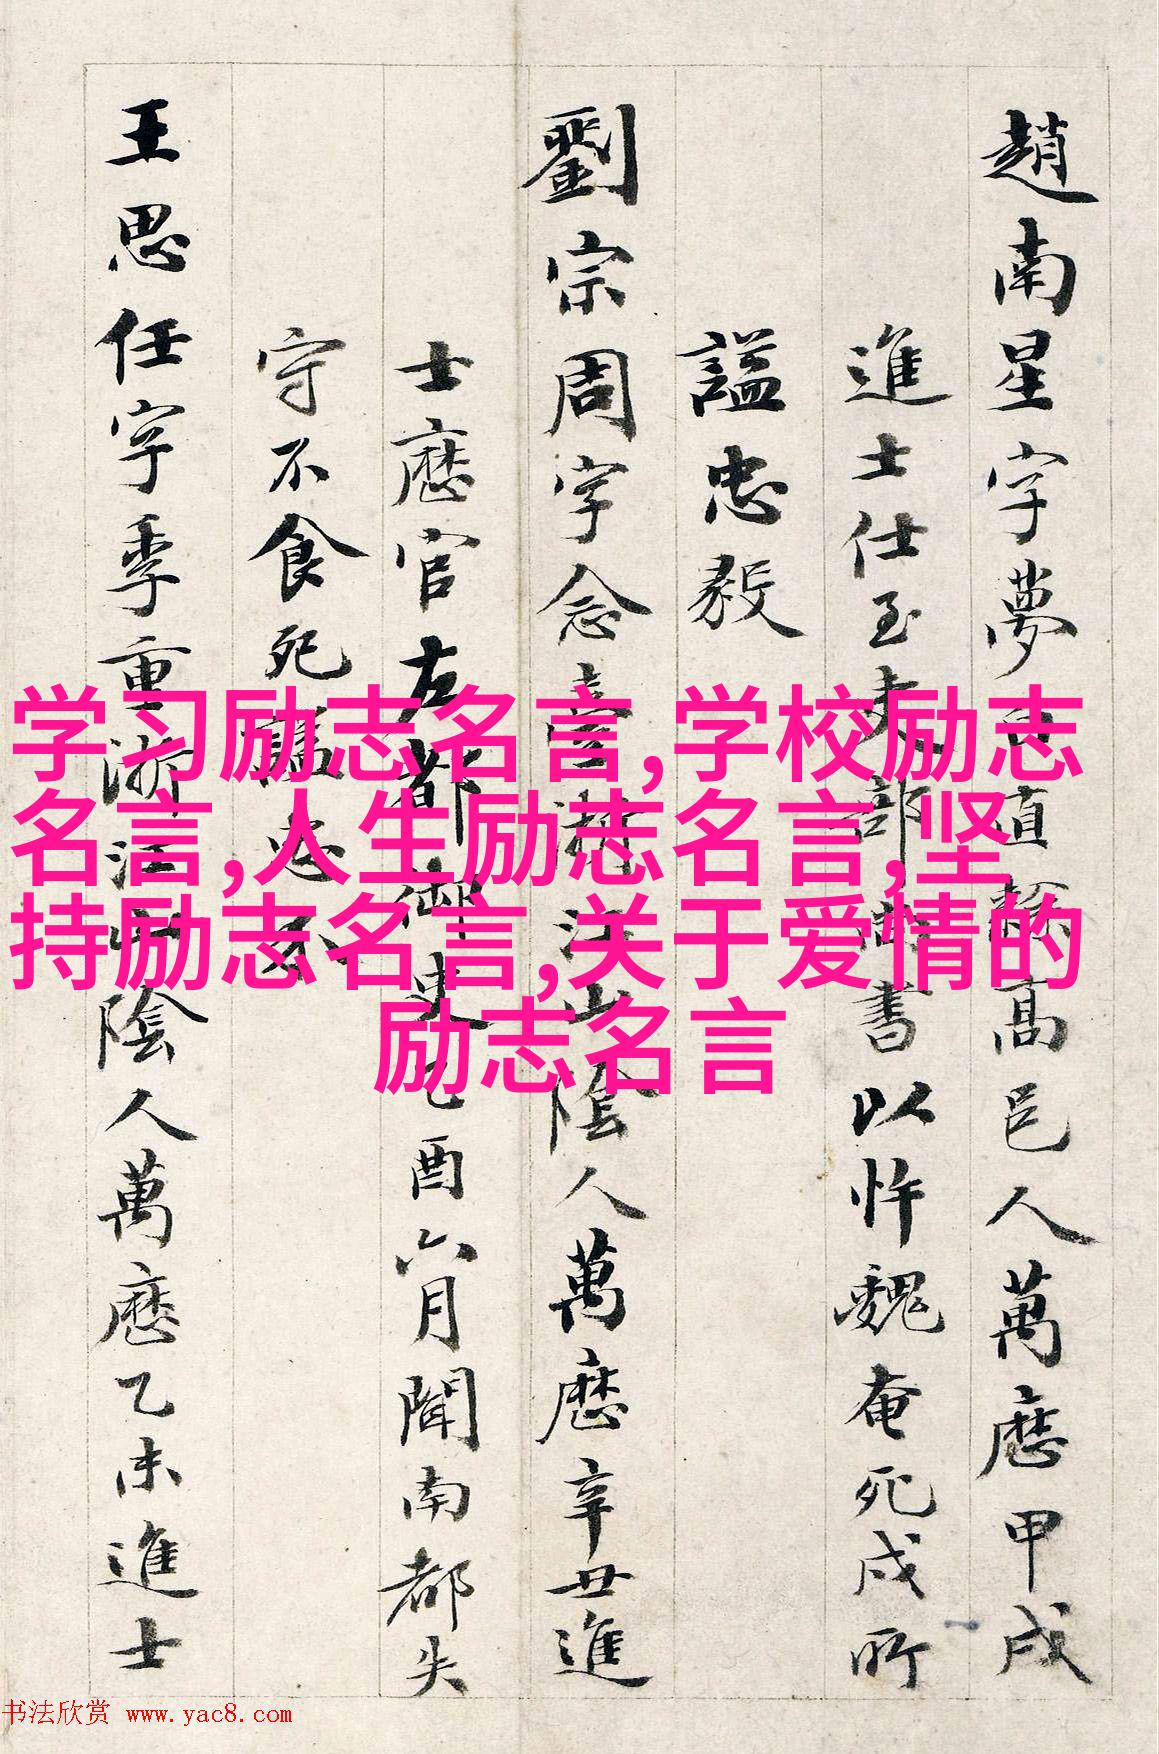 趙南星字夢白直隸高邑人萬曆甲戌
進士仕至吏部尚書以忤魏奄死戍所
謚忠毅
劉宗周字念臺浙江山陰人萬曆辛丑進
士歷官左都御史乙酉六月聞南都失
守不食死謚忠
王思任字季重浙江山陰人萬曆乙未進士
学习励志名言,学校励志
名言,人生励志名言,坚
持励志名言,关于爱情的
励志名言
书法欣赏 www.yac8.com